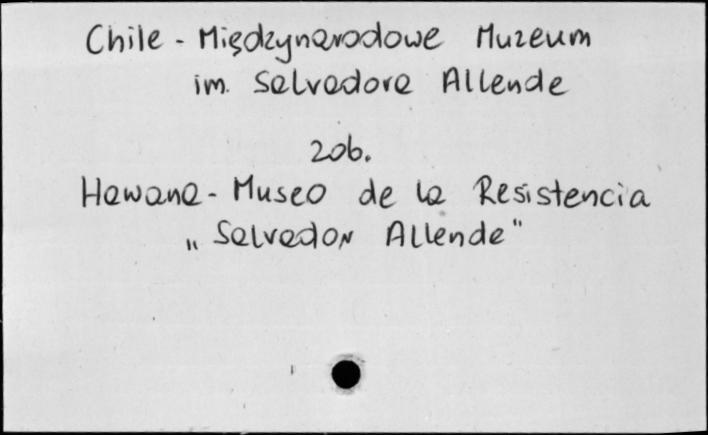 Chile - Międzynarodowe Muzeum
im. Salvadora Allende
zob.
Hawana - Museo de la Resistencia
„Salvador Allende"